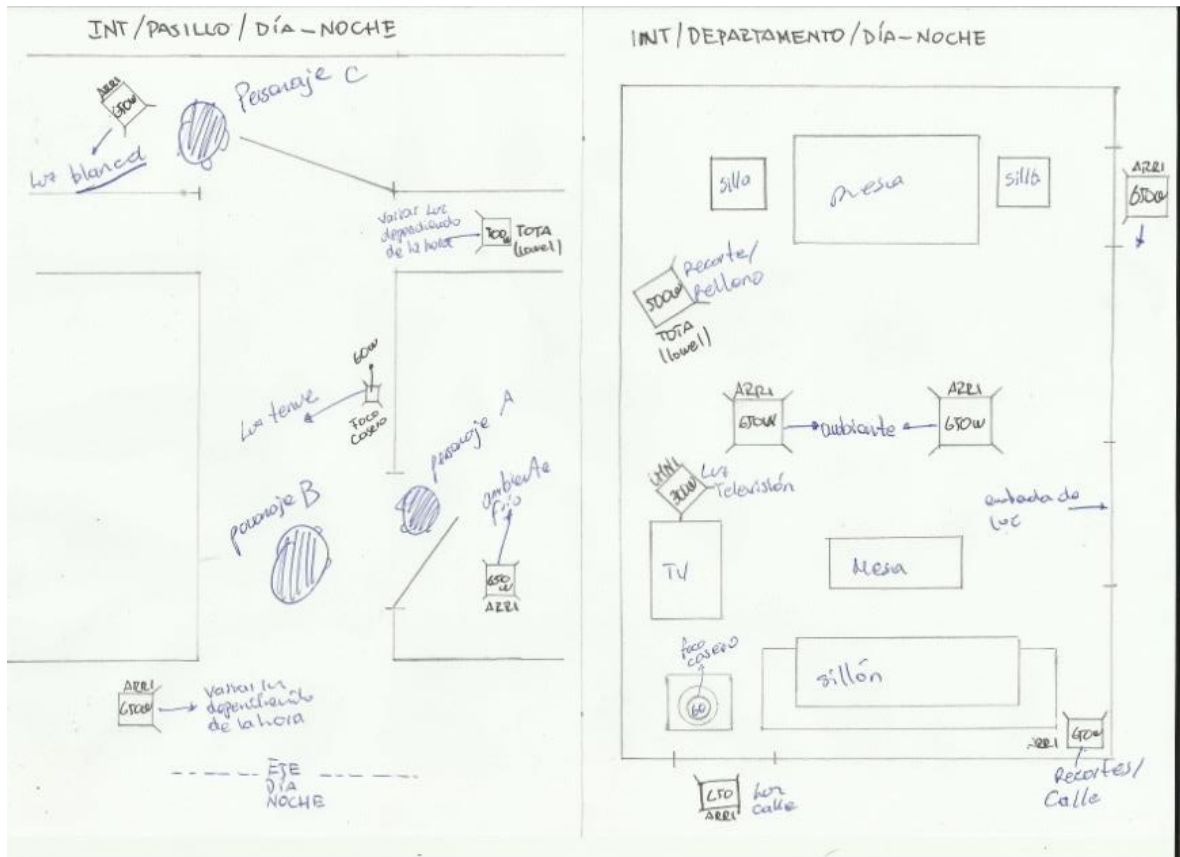 INT/PASILLO/DÍA-NOCHE
ARRI
650w
Personaje C
Luz blanca
variar luz
dependiendo
de la hora
TOTA
(lowel)
60w
Luz tenue
Foco
casero
personaje A
ambiente
frío
personaje B
650
w
ARRI
ARRI
650w
variar luz
dependiendo
de la hora
EJE
DÍA
NOCHE
INT/DEPARTAMENTO/DÍA-NOCHE
silla
mesa
silla
ARRI
650w
Recorte/
Relleno
500w
TOTA
(lowel)
ARRI
650w
ambiente
ARRI
650w
Luz
Televisión
300w
entrada de
luz
TV
Mesa
foco
casero
60
sillón
650w
ARRI
Recortes/
Calle
650
ARRI
Luz
calle